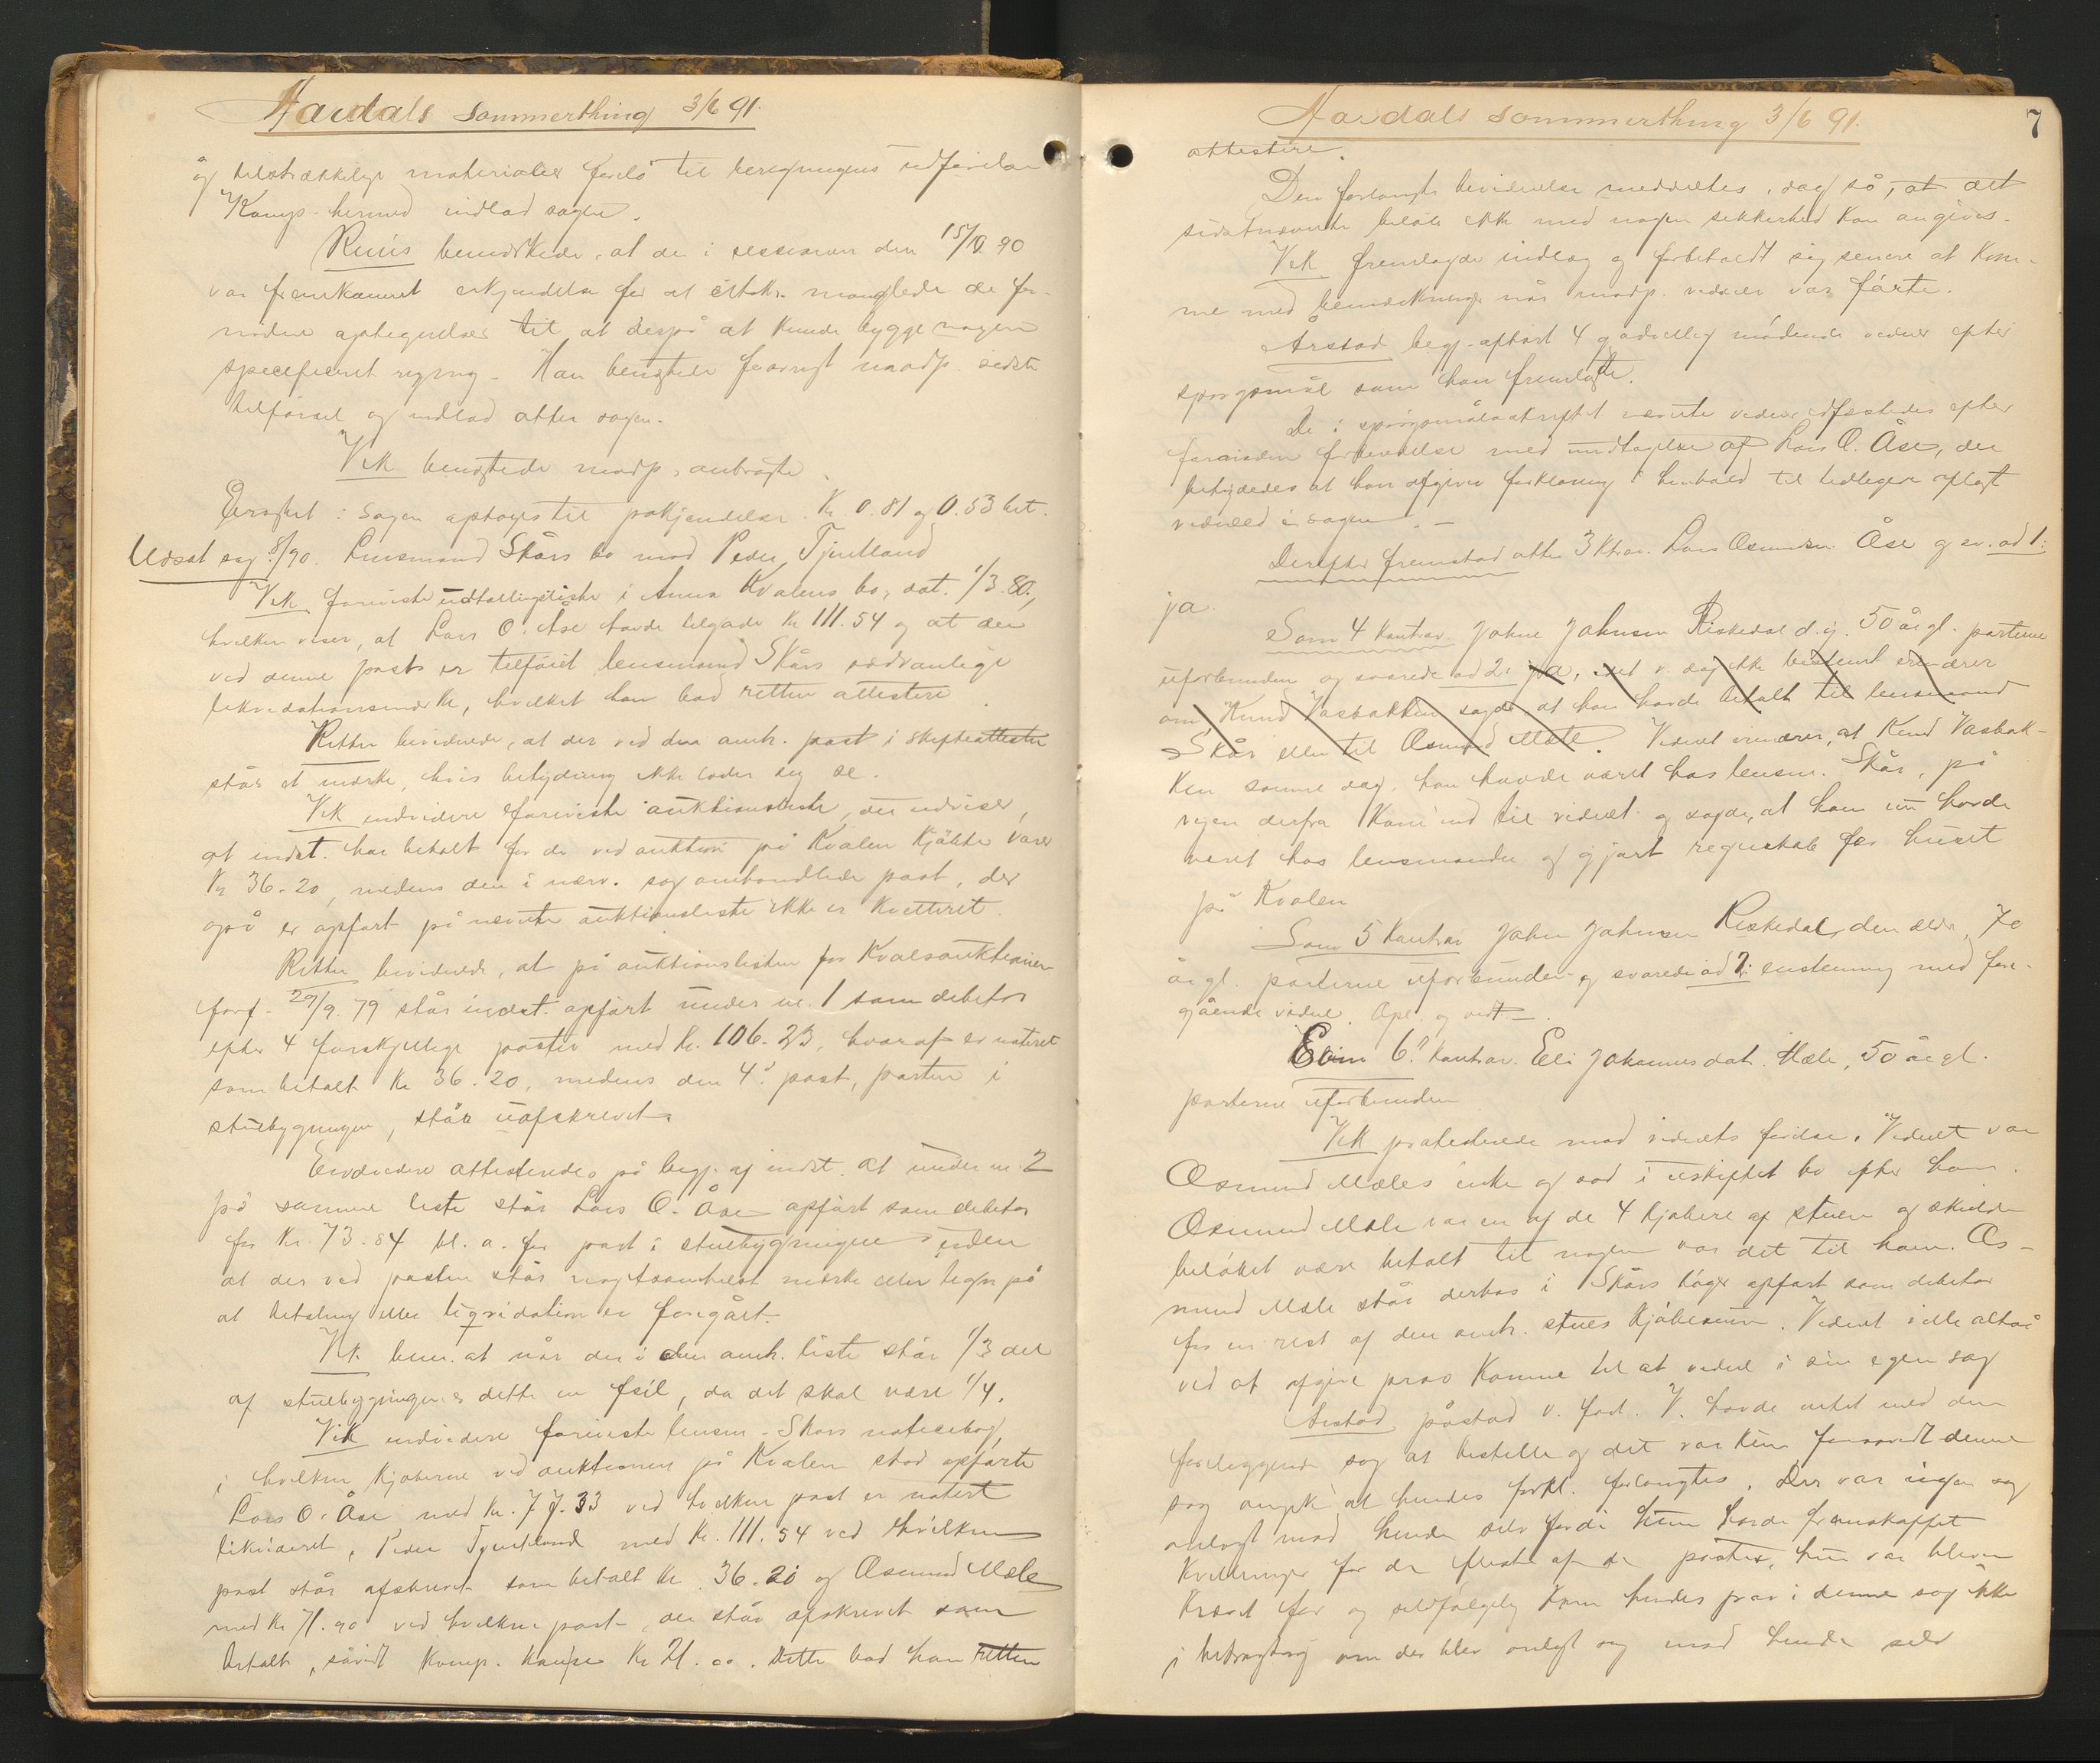 Aardals sommerthing 3/6 91.
og tilstrækkelige materialer forelå til beregningens udførelse
Komp. hermed indlod sagen.
Riis bemærkede, at der i sessionen den 15/10 90
var fremkommet erkjendelse for at citsk. manglede de for-
nødne optegnelser til at derpå at kunde bygge nogen
specificeret regning. Han benegtede forøvrigt modp. sidste
tilførsel og indlod atter sagen.
Vik benegtede modp. anbragte.
Eragtet: Sagen optoges til påkjendelse. Kr. 0.81 og 0.53 bet.
Udsat sag 8/90. Lensmand Skårs bo mod Peder Tjentland
Vik foreviste udtællingsliste i Anna Kvalens bo, dat. 1/3. 80,
hvilken viser, at Lars O. Åse havde tilgode kr 111.54 og at der
ved denne post er tilføiet lensmand Skårs sædvanlige
likvidationsmærke, hvilket han bad retten attestere.
Retten bevidnede, at der ved den anh. post i skifteattesten
står et mærke, hvis betydning ikke lader sig se.
Vik endvidere foreviste auktionsliste, der udviser,
at indst. har betalt for de ved auktion på Kvalen kjøbte varer
Kr 36.20, medens den i nærv. sag omhandlede post, der
også er opført på nævnte auktionsliste ikke er kvitteret.
Retten bevidnede, at på auktionslisten for Kvalsauktionen
forf. 29/9. 79 står indst. opført under nr. 1 som debitor
efter 4 forskjellige poster med kr. 106.23, hvoraf er noteret
som betalt kr 36.20, medens den 4de post, parten i
stuebygningen, står uafskrevet.
Endvidere attesteredes på begj. af indst. at under nr. 2
på samme liste står Lars O. Åse opført som debitor
for kr. 73.84 bl. a. for part i stuebygningen uden
at der ved posten står nogetsomhelst mærke eller tegn på
at betaling eller liqvidation er foregået.
Vik bem. at når der i den anh. liste står 1/3 del
af stuebygningen er dette en feil, da det skal være 1/4.
Vik endvidere foreviste lensm. Skårs noticebog,
i hvilken kjøberne ved auktionen på Kvalen stod opførte
Lars O. Åse med kr. 77.33 ved hvilken post er notert
likvideret, Peder Tjentland med kr. 111.54 ved hvilken
post står afskrevet som betalt kr. 36.20 og Osmund Mæle
med kr 71.90 ved hvilken post der står afskrevet som
betalt, såvidt komp. kan se kr 21.00. Dette bad han retten
Aardals sommerthing 3/6 91.
7
attestere.
Den forlangte bevidnelse meddeltes, dog så, at det
sidstnævnte beløb ikke med nogen sikkerhed kan angives.
Vik fremlagde indlæg og forbeholdt sig senere at kom-
me med bemærkninger når modp. vidner var førte.
Årstad begj. afhørt 4 godvillig mødende vidner efter
spørgsmål som han fremlagde.
De i spørgsmålsskriftet nævnte vidner edfæstedes efter
foregående forberedelse med undtagelse af Lars O. Åse, der
betydedes at han afgiver forklaring i henhold til tidligere aflagt
vidneed i sagen. —
Derefter fremstod atter 3 ktrav. Lars Osmundsen Åse og sv. ad 1:
ja.
Som 4 kontrav. Johne Johnsen Riskedal d. y. 50 år gl. parterne
uforbunden og svarede ad 2: ja, det v. dog ikke bestemt erindrer
om Knud Vasbakken sagde, at han havde betalt til lensmand
Skår eller til Osmund Mæle. Vidnet erindrer, at Knud Vasbak-
ken samme dag, han havde været hos lensm. Skår, på
veien derfra kom ind til vidnet og sagde, at han nu havde
været hos lensmanden og gjort regnskab for huset
på Kvalen
Som 5 kontrav John Johnsen Riskedal, den ældre, 70
år gl. parterne uforbunden og svarede ad 2: enstemmig med fore-
gående vidne. Opl. og vedt. —
Som 6te kontrav. Eli Johannesdat. Mæle, 50 år gl.
parterne uforbunden
Vik protesterede mod vidnets førelse. Vidnet var
Osmund Mæles enke og sad i uskiftet bo efter ham.
Osmund Mæle var en af de 4 kjøbere af stuen og skulde
beløbet være betalt til nogen var det til ham. Os-
mund Mæle står derhos i Skårs bøger opført som debitor
for en rest af den omh. stues kjøbesum. Vidnet vilde altså
ved at afgive prov komme til at vidne i sin egen sag
Årstad påstod v. ført. V. havde intet med den
foreliggende sag at bestille og det var kun forsåvidt denne
sag angik at hendes forkl. forlangtes. Der var ingen sag
anlagt mod hende selv fordi hun havde fremskaffet
kvitteringer for de fleste af de poster, hun var bleven
krævet for og selvfølgelig kom hendes prov i denne sag ikke
i betragtning om der blev anlagt sag mod hende selv